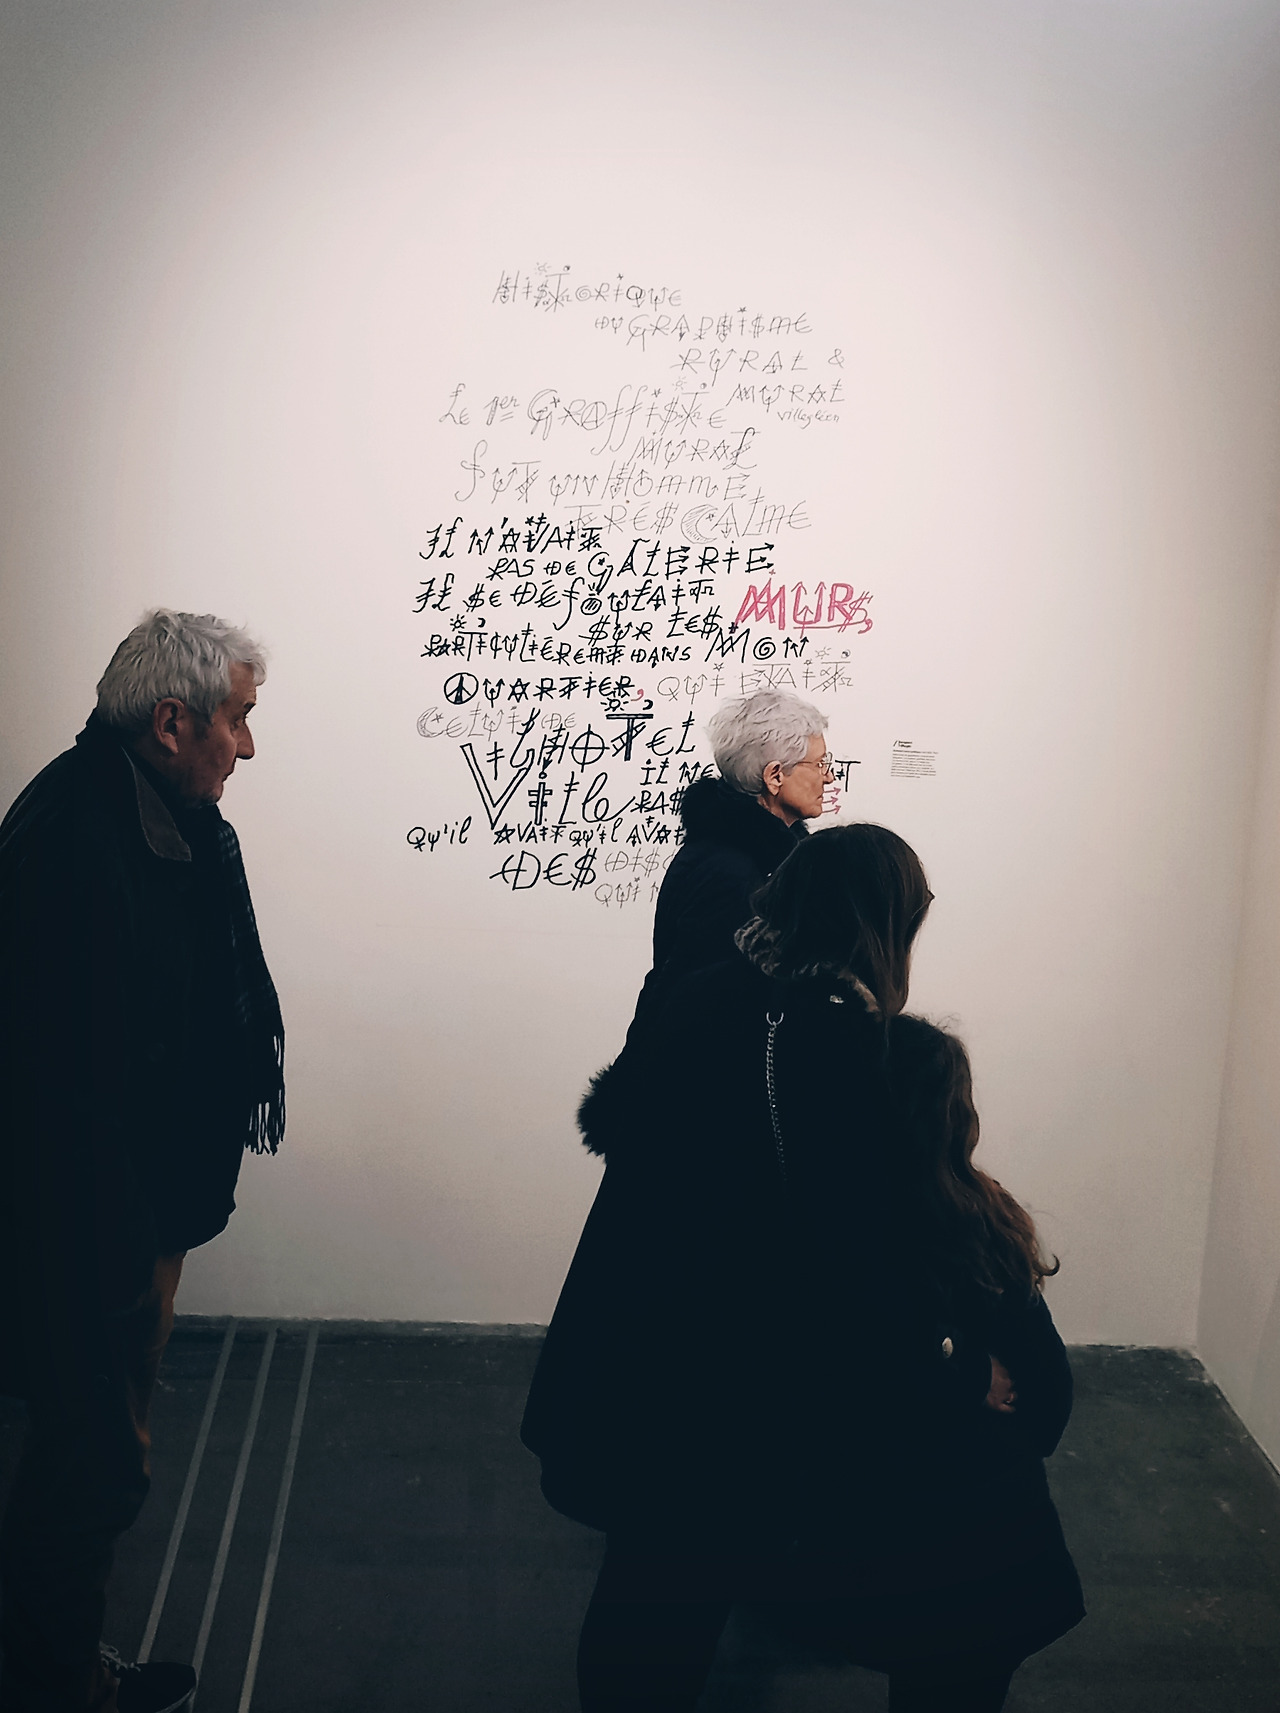 HISTORIQUE
DU GRAPHISME
RURAL &
MURAL
LE 1er GRAFFISTE
villegléen
MURAL
FUT UN HOMME
TRÈS CALME
IL N'AVAIT
PAS DE GALERIE
IL SE DÉFOULAIT
SUR LES MURS,
PARTICULIÈREMENT DANS MON
QUARTIER, QUI ÉTAIT
CELUI DE
L'HOTEL
DE Ville
IL NE
PAS
QU'il AVAIT QU'il AVAIT
DES
QUI